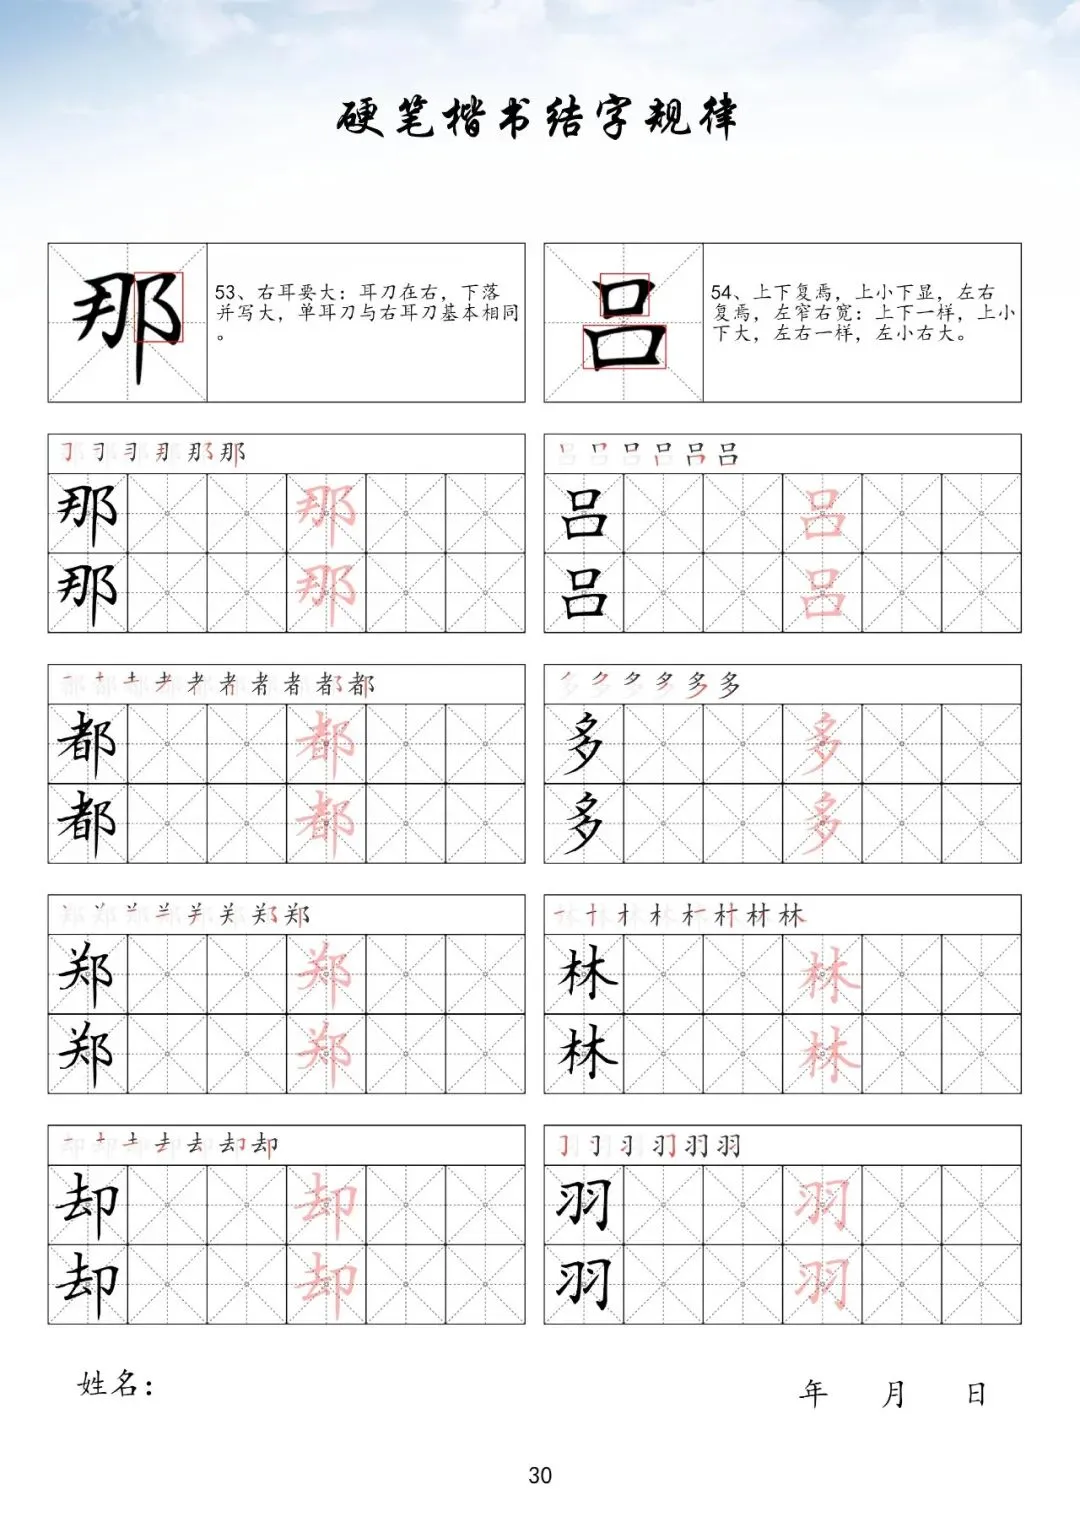 硬笔楷书结字规律
那
53、右耳要大：耳刀在右，下落
并写大，单耳刀与右耳刀基本相同
。
吕
54、上下复焉，上小下显，左右
复焉，左窄右宽：上下一样，上小
下大，左右一样，左小右大。
那
那 那
那 那
吕
吕 吕
吕 吕
都
都 都
都 都
多
多 多
多 多
郑
郑 郑
郑 郑
林
林 林
林 林
却
却 却
却 却
羽
羽 羽
羽 羽
姓名：
年 月 日
30